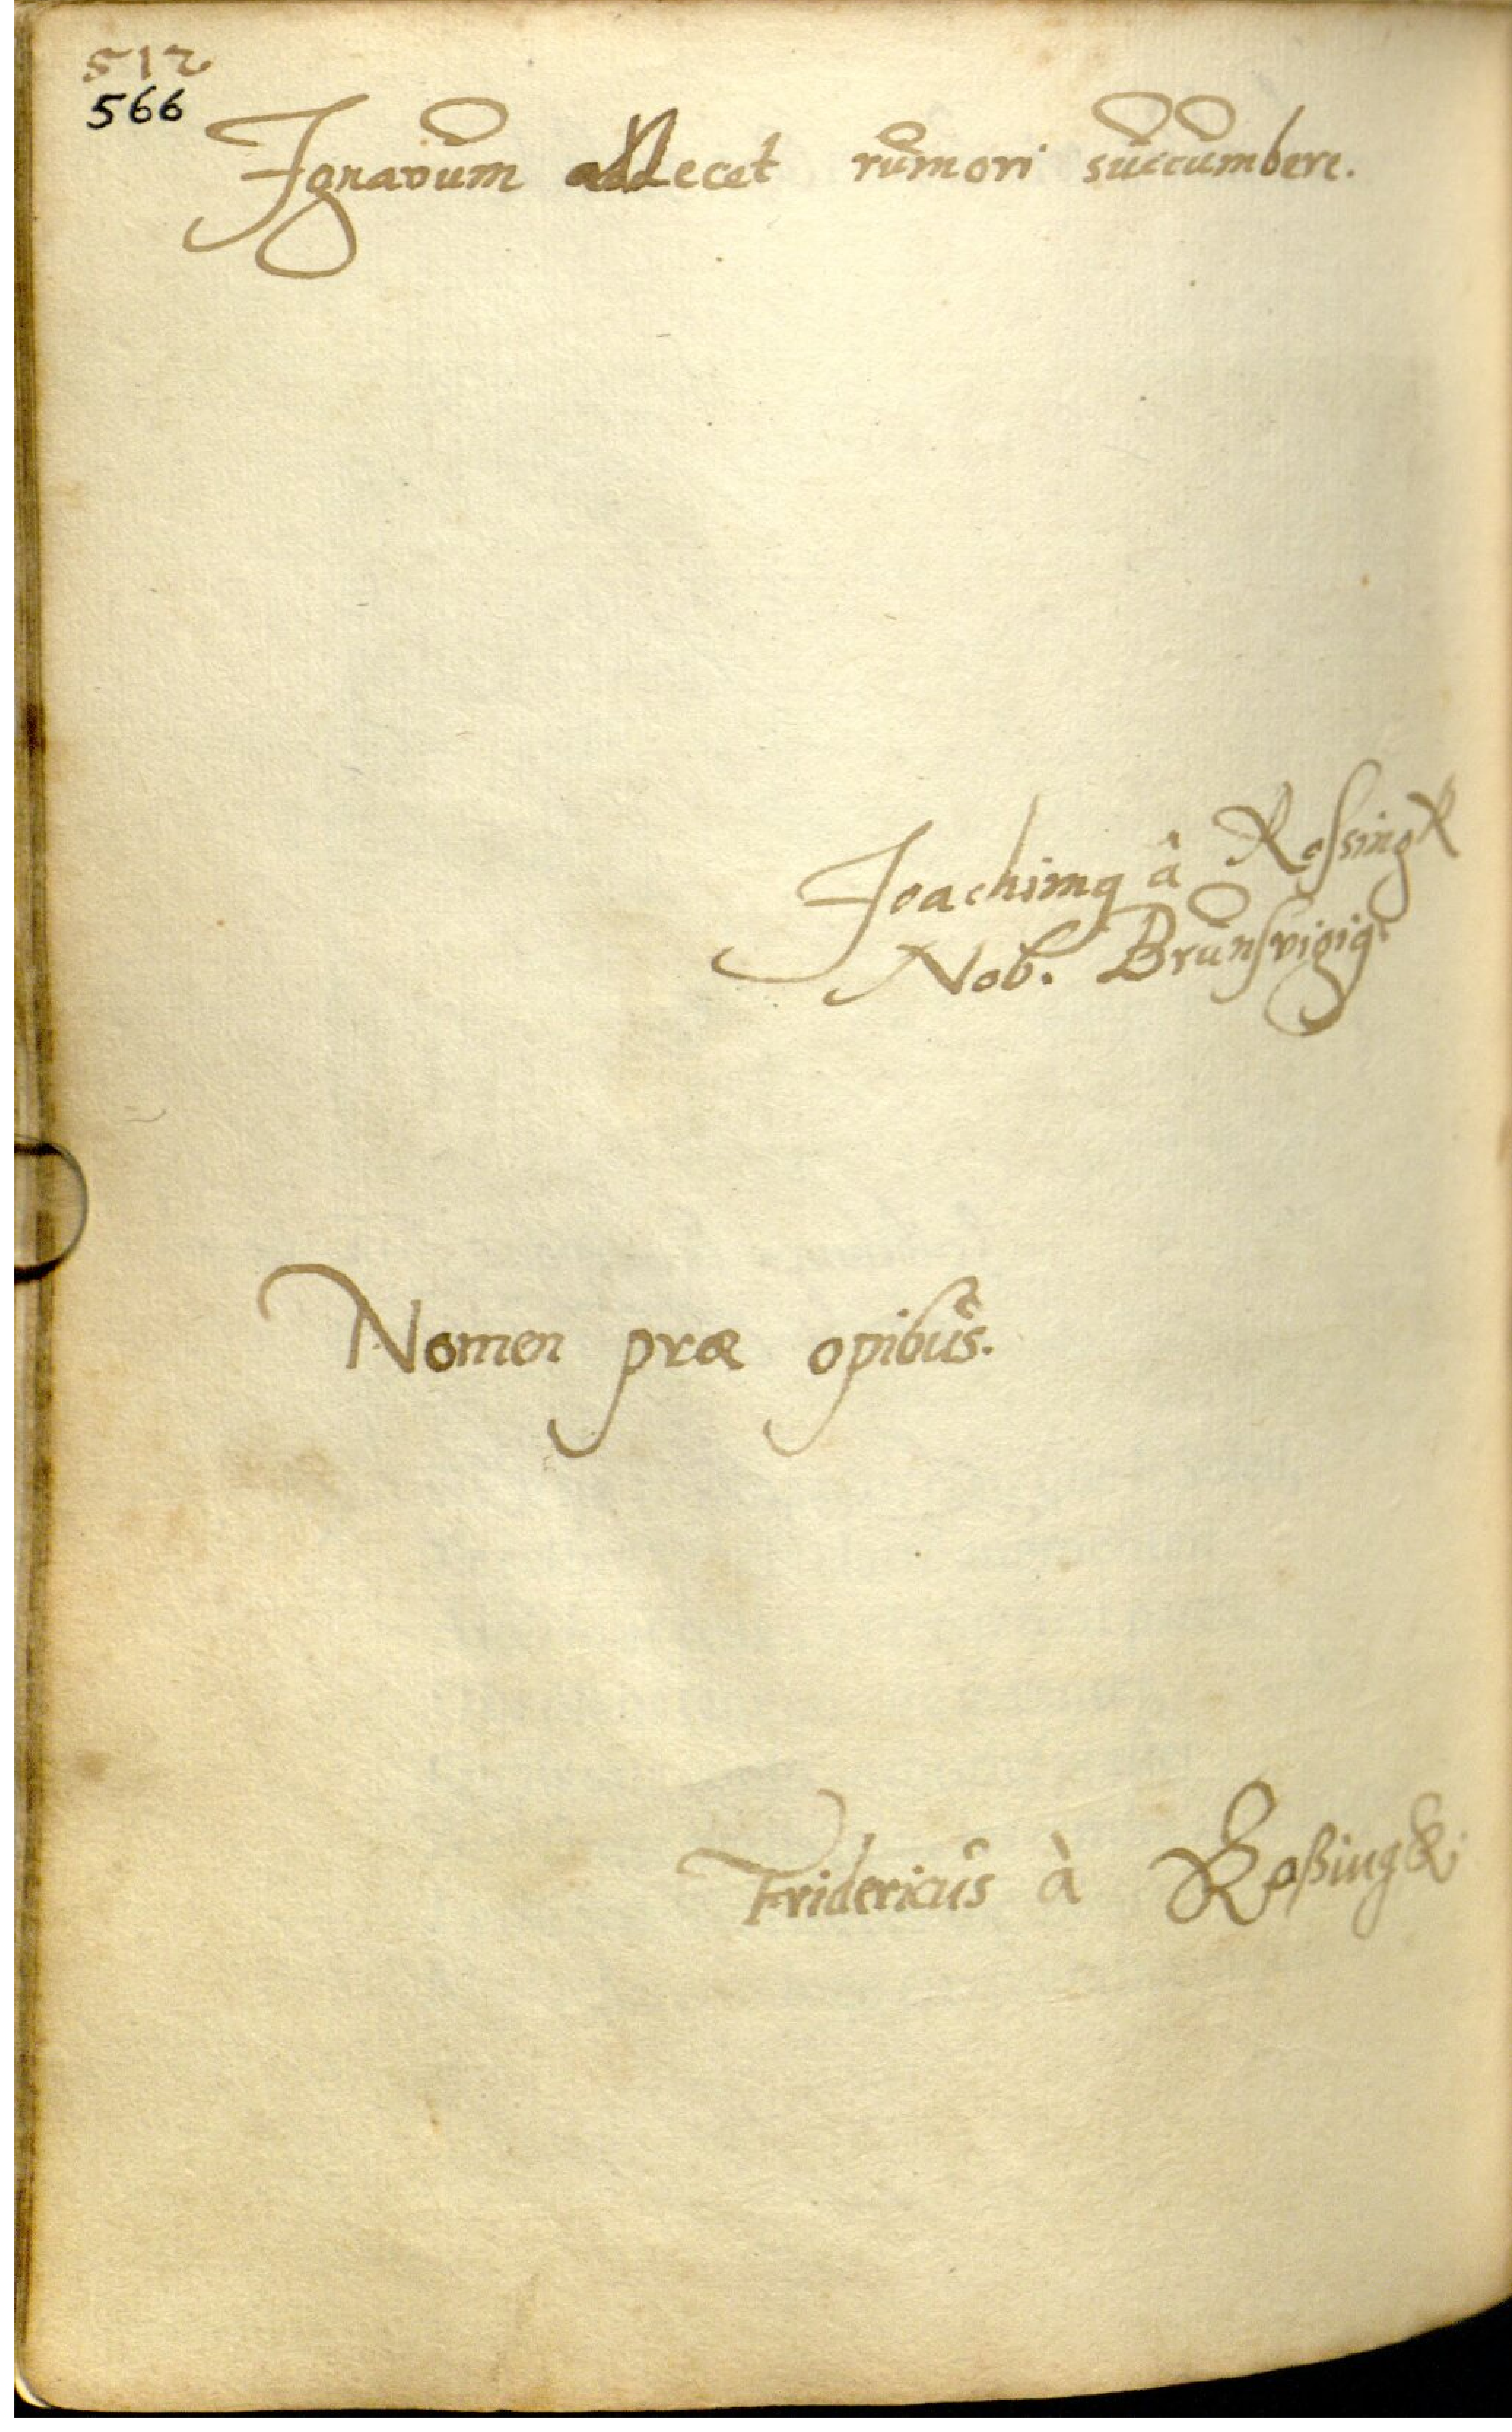 512
566
Ignavum addecet rumori succumbere.
Joachimꝰ â Rossingk
Nob. Brunsvigigꝰ
Nomen præ opibus.
Fridericus à Roßingk.